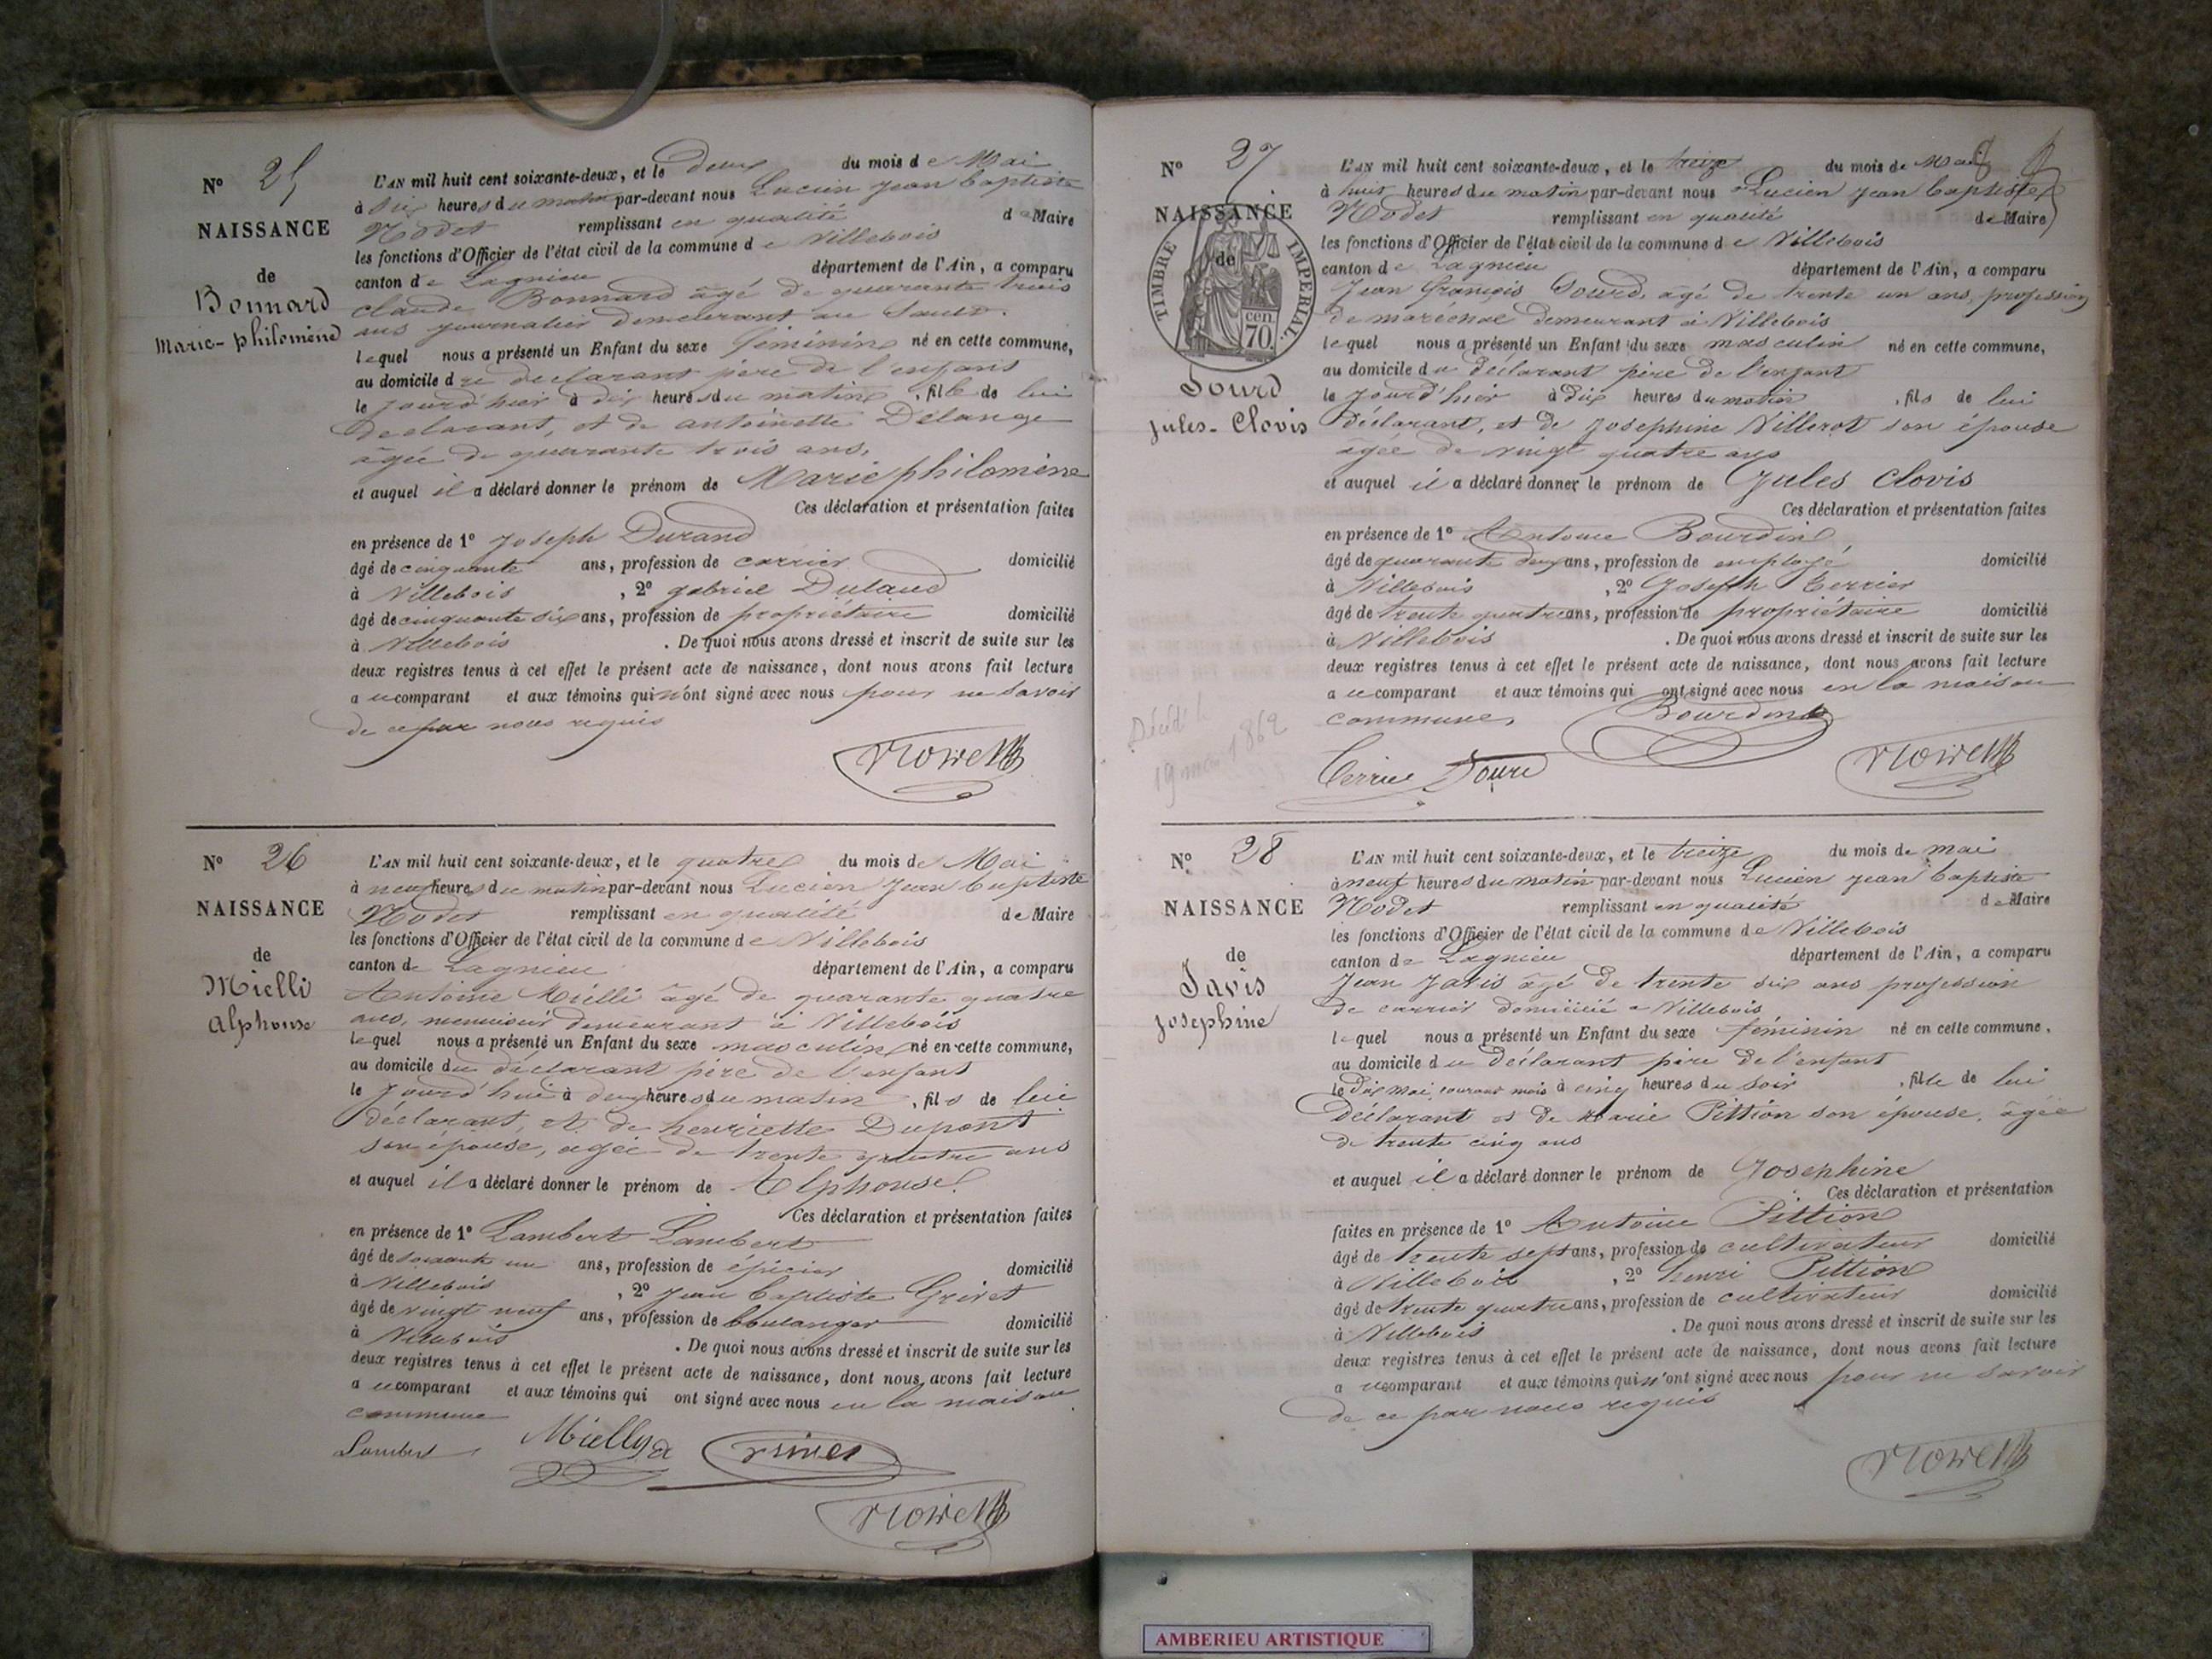 N° 25
NAISSANCE
de
Bonnard
Marie-philomène
L'AN mil huit cent soixante-deux, et le deux du mois de Mai
à dix heures du matin par-devant nous Lucien Jean baptiste
Nodet remplissant en qualité de Maire
les fonctions d'Officier de l'état civil de la commune de Villebois
canton de Lagnieu département de l'Ain, a comparu
claude Bonnard âgé de quarante trois
ans journalier demeurant au Sault.
lequel nous a présenté un Enfant du sexe féminin né en cette commune,
au domicile du déclarant père de l'enfant
le jourd'hier à dix heures du matin, fille de lui
déclarant, et de antoinette Délange
âgée de quarante trois ans,
et auquel il a déclaré donner le prénom de Marie philomène
Ces déclaration et présentation faites
en présence de 1° Joseph Durand
âgé de cinquante ans, profession de carrier domicilié
à Villebois, 2° gabriel Dulaud
âgé de cinquante six ans, profession de propriétaire domicilié
à Villebois. De quoi nous avons dressé et inscrit de suite sur les
deux registres tenus à cet effet le présent acte de naissance, dont nous avons fait lecture
au comparant et aux témoins qui n'ont signé avec nous pour ne savoir
de ce par nous requis
N° 26
NAISSANCE
de
Mielli
Alphonse
L'AN mil huit cent soixante-deux, et le quatre du mois de Mai
à neuf heures du matin par-devant nous Lucien Jean baptiste
Nodet remplissant en qualité de Maire
les fonctions d'Officier de l'état civil de la commune de Villebois
canton de Lagnieu département de l'Ain, a comparu
Antoine Mielli âgé de quarante quatre
ans, menuisier demeurant à Villebois
lequel nous a présenté un Enfant du sexe masculin né en cette commune,
au domicile du déclarant père de l'enfant
le jourd'hui à deux heures du matin, fils de lui
déclarant, et de henriette Dupont
son épouse, agée de trente quatre ans
et auquel il a déclaré donner le prénom de Alphonse.
Ces déclaration et présentation faites
en présence de 1° Lambert Lambert
âgé de soixante un ans, profession de épicier domicilié
à Villebois, 2° Jean baptiste Grivet
âgé de vingt neuf ans, profession de boulanger domicilié
à Villebois. De quoi nous avons dressé et inscrit de suite sur les
deux registres tenus à cet effet le présent acte de naissance, dont nous avons fait lecture
au comparant et aux témoins qui ont signé avec nous en la maison
commune
Lambert Mielly
N° 27
NAISSANCE
de
TIMBRE IMPERIAL.
70 cen.
Sourd
jules-Clovis
Décédé le
19 mai 1862
L'AN mil huit cent soixante-deux, et le treize du mois de Mai
à huit heures du matin par-devant nous Lucien jean baptiste
Nodet remplissant en qualité de Maire
les fonctions d'Officier de l'état civil de la commune de Villebois
canton de Lagnieu département de l'Ain, a comparu
Jean françois Sourd, âgé de trente un ans, profession
de maréchal demeurant à Villebois
lequel nous a présenté un Enfant du sexe masculin né en cette commune,
au domicile du déclarant père de l'enfant
le jourd'hier à dix heures du matin, fils de lui
déclarant, et de Josephine Villerot son épouse
âgée de vingt quatre ans
et auquel il a déclaré donner le prénom de Jules Clovis
Ces déclaration et présentation faites
en présence de 1° Antoine Bourdin
âgé de quarante deux ans, profession de employé domicilié
à Villebois, 2° Joseph Cerrier
âgé de trente quatre ans, profession de propriétaire domicilié
à Villebois. De quoi nous avons dressé et inscrit de suite sur les
deux registres tenus à cet effet le présent acte de naissance, dont nous avons fait lecture
au comparant et aux témoins qui ont signé avec nous en la maison
commune, Bourdin
Sourd
N° 28
NAISSANCE
de
Javis
Josephine
L'AN mil huit cent soixante-deux, et le treize du mois de mai
à neuf heures du matin par-devant nous Lucien jean baptiste
Nodet remplissant en qualité de Maire
les fonctions d'Officier de l'état civil de la commune de Villebois
canton de Lagnieu département de l'Ain, a comparu
Jean Javis âgé de trente six ans profession
de carrier domicilié a Villebois
lequel nous a présenté un Enfant du sexe féminin né en cette commune,
au domicile du déclarant père de l'enfant
le dix mai courant mois à cinq heures du soir, fille de lui
Déclarant et de Marie Pittion son épouse, âgée
de trente cinq ans
et auquel il a déclaré donner le prénom de Josephine
Ces déclaration et présentation
faites en présence de 1° Antoine Pittion
âgé de trente sept ans, profession de cultivateur domicilié
à Villebois, 2° henri Pittion
âgé de trente quatre ans, profession de cultivateur domicilié
à Villebois. De quoi nous avons dressé et inscrit de suite sur les
deux registres tenus à cet effet le présent acte de naissance, dont nous avons fait lecture
au comparant et aux témoins qui n'ont signé avec nous pour ne savoir
de ce par nous requis
AMBERIEU ARTISTIQUE